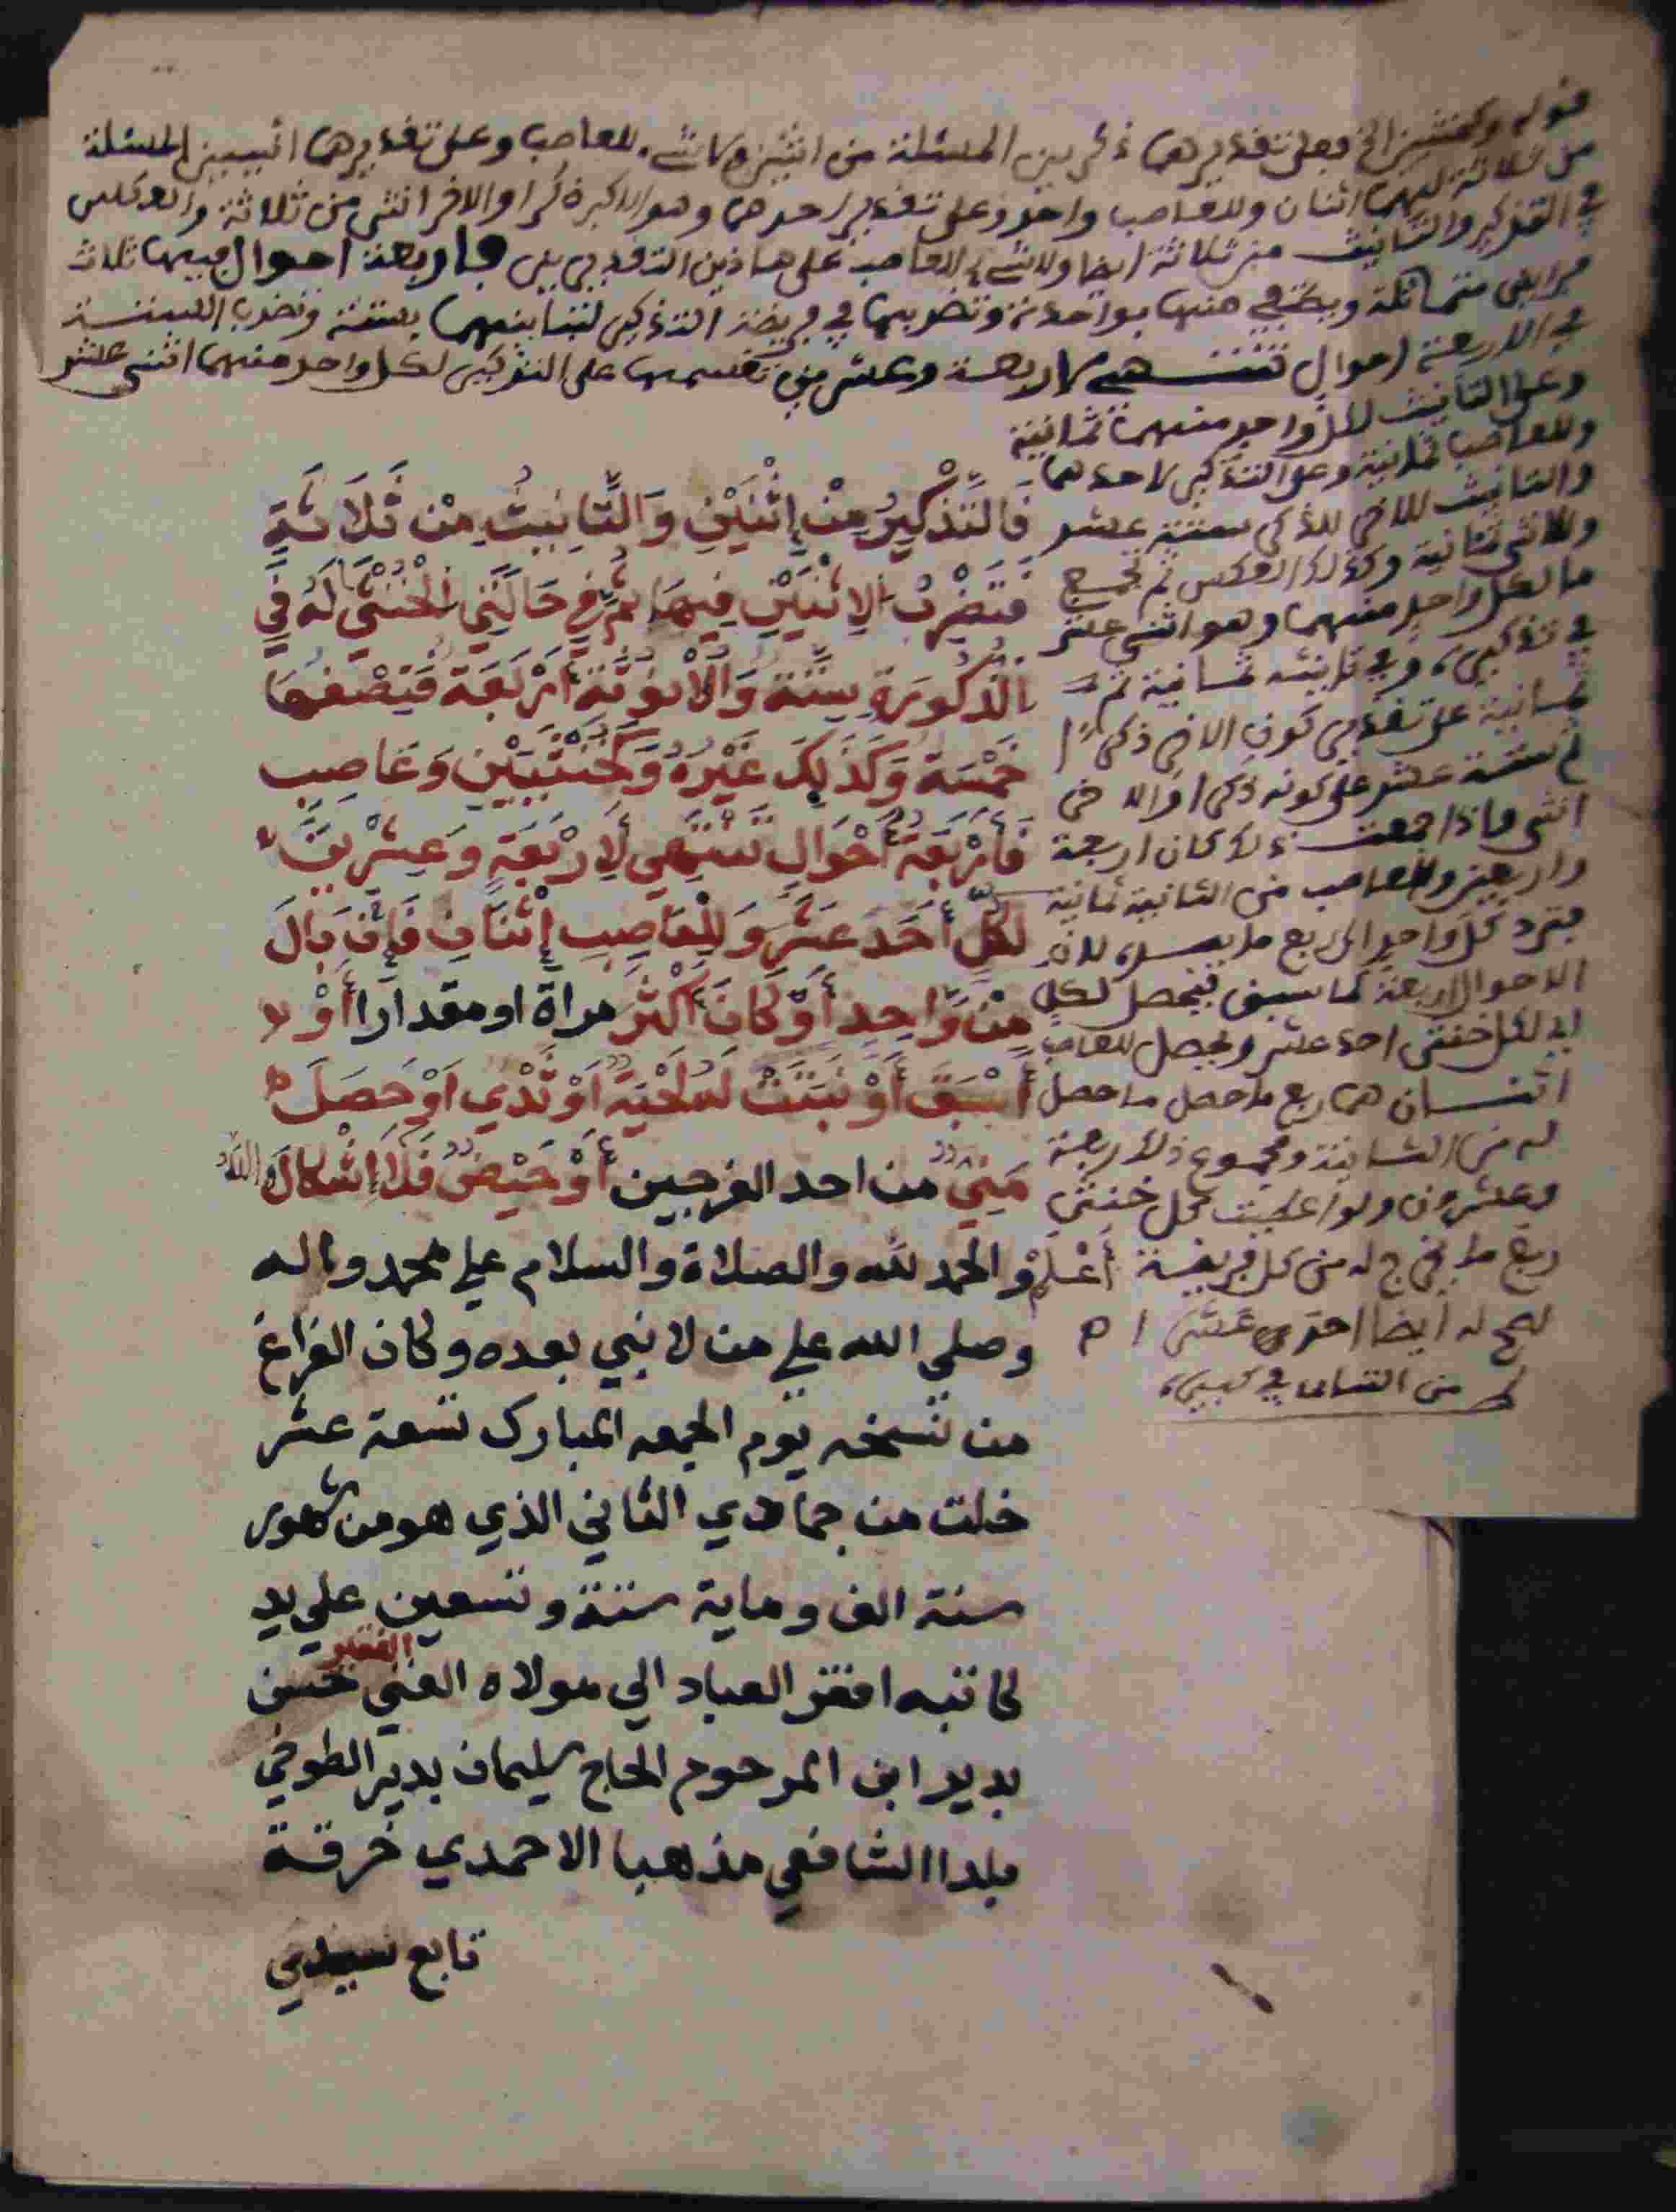 قوله وكخنثيين الخ فعلى تقديرهما ذكرين المسئلة من اثنين ولا شيء للعاصب وعلى تقديرهما انثيين المسئلة
من ثلاثة لهما اثنان وللعاصب واحد وعلى تقدير احدهما وهو الاكبر ذكرا والاخر انثى من ثلاثة والعكس
في التذكير والتانيث من ثلاثة ايضا ولا شيء للعاصب على هاذين التقديرين فاربعة احوال فيها ثلاث
فرايض متماثلة ويكتفى منها بواحدة وتضربها في فريضة التذكير لتباينهما بستة وتضرب الستة
في الاربعة احوال تنتهي لاربعة وعشرين تقسمها على التذكير لكل واحد منهما اثنى عشر
وعلى التانيث لكل واحد منهما ثمانية
وللعاصب ثمانية وعلى التذكير لاحدهما
والتانيث للاخر للذكر ستة عشر
وللانثى ثمانية وكذلك العكس ثم تجمع
ما لكل واحد منهما وهو اثنى عشر
في تذكيره وفي تانيثه ثمانية ثم
ثمانية على تقدير كون الاخر ذكرا
ثم ستة عشر على كونه ذكرا والاخر
انثى فاذا جمعت ذلك كان اربعة
واربعين وللعاصب من الثانية ثمانية
فترد كل واحد الى ربع ما بيده لان
الاحوال اربعة كما سبق فيحصل لكل
اي لكل خنثى احد عشر ويحصل للعاصب
اثنان هما ربع ما حصل
له من الثمانية ومجموع ذلك اربعة
وعشرون ولو اعطيت لكل خنثى
ربع ما يخرج له من كل فريضة
لصح له ايضا احدى عشر اه
من التتاي في كبيره
فَالتَّذْكِيرُ مِنْ إِثْنَيْنِ وَالتَّانِيثُ مِنْ ثَلَاثَةٍ
فَتَضْرِبُ الاِثْنَيْنِ فِيهَا ثُمَّ فِي حَالَتَيِ الْخُنْثَى لَهُ فِي
الذُّكُورَةِ سِتَّةٌ وَالْأُنُوثَةِ أَرْبَعَةٌ فَنِصْفُهَا
خَمْسَةٌ وَكَذَلِكَ غَيْرُهُ وَكَخُنْثَيَيْنِ وَعَاصِبٍ
فَأَرْبَعَةُ أَحْوَالٍ تَنْتَهِي لِأَرْبَعَةٍ وَعِشْرِينَ
لِكُلٍّ أَحَدَ عَشَرَ وَلِلْعَاصِبِ إِثْنَانِ فَإِنْ بَالَ
مِنْ وَاحِدٍ أَوْ كَانَ أَكْثَرَ مراة او مقدارا أَوْ
أَسْبَقَ أَوْ نَبَتَتْ لَهُ لِحْيَةٌ أَوْ ثَدْيٌ أَوْ حَصَلَ
مَنِيٌّ من احد الفرجين أَوْ حَيْضٌ فَلَا إِشْكَالَ والله
أعلم والحمد لله والصلاة والسلام علي محمد واله
وصلي الله علي من لا نبي بعده وكان الفراغ
من نسخه يوم الجمعه المبارك تسعة عشر
خلت من جمادي الثاني الذي هو من شهور
سنة الف وماية ستة وتسعين علي يد
كاتبه افقر العباد الي مولاه الغني الفقير حسن
بدير ابن المرحوم الحاج سليمان بدير الطوخي
بلدا الشافعي مذهبا الاحمدي خرقة
تابع سيدي